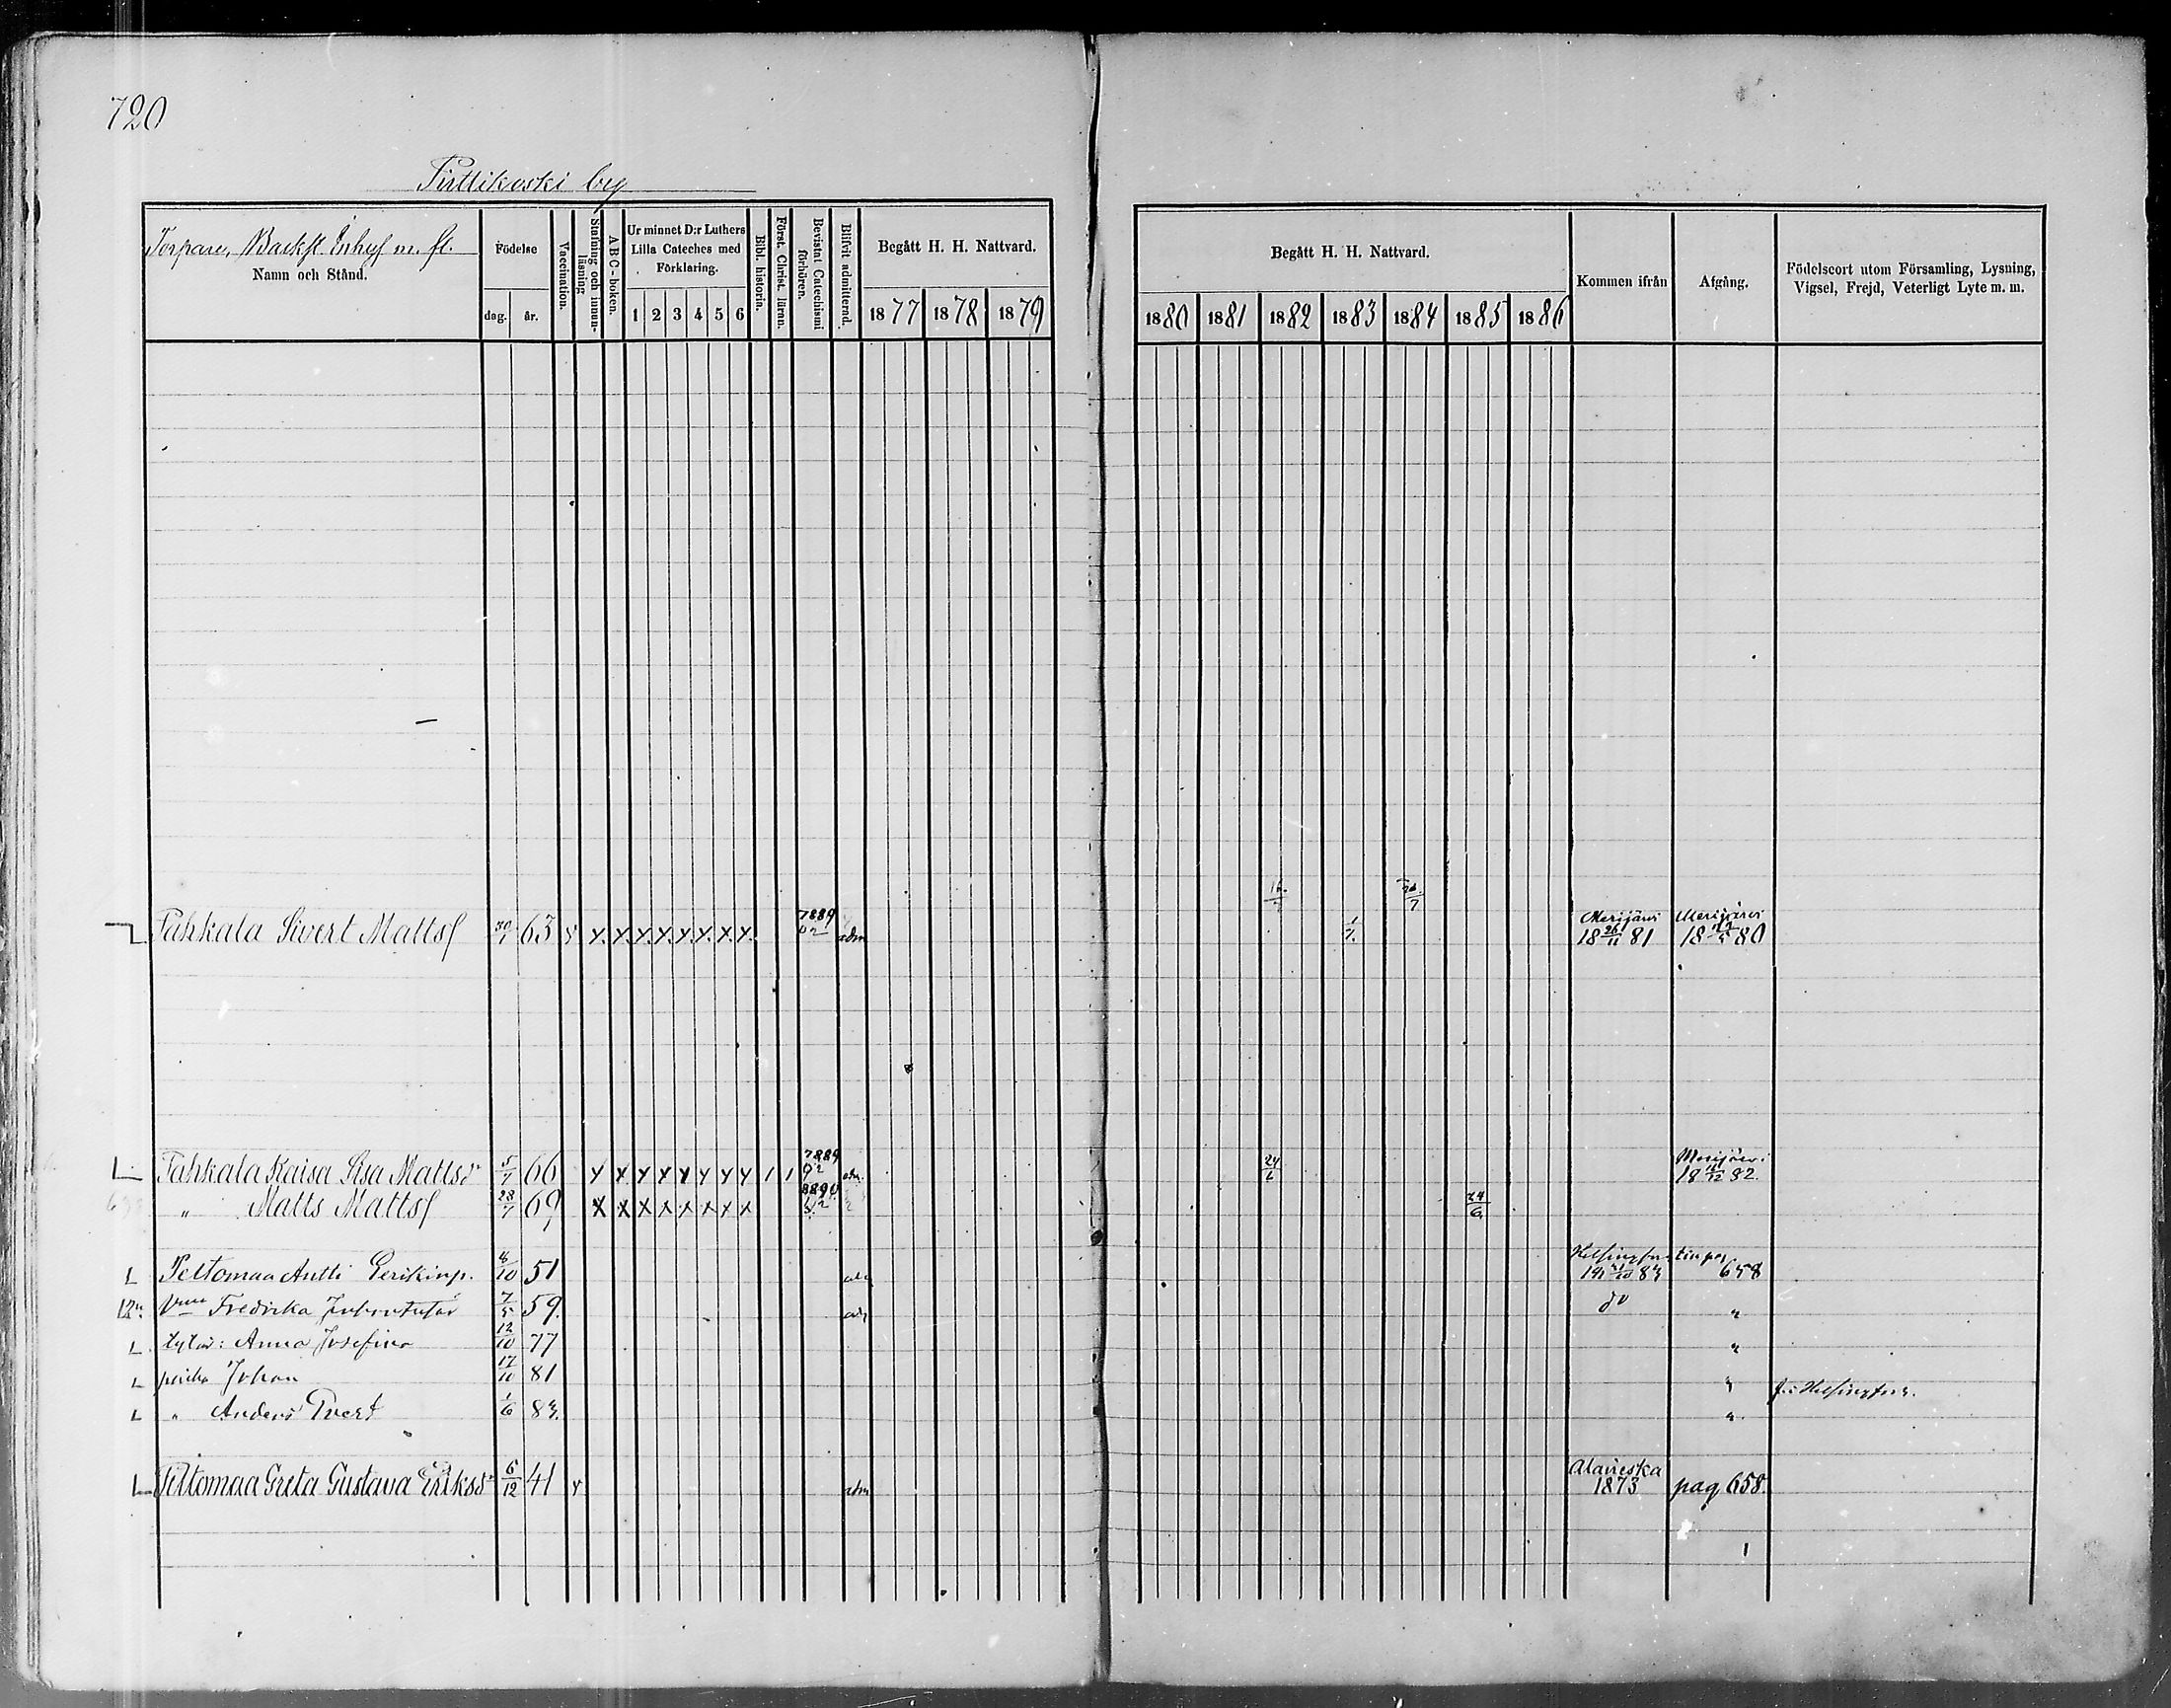 720
Pirttikoski by
Torpare, Backst. Inhys m. fl.
Namn och Stånd.
Födelse
dag. år.
Vaccination.
Stafning och innanläsning
ABC-boken.
Ur minnet D:r Luthers
Lilla Cateches med
Förklaring.
1 2 3 4 5 6
Bibl. historia.
Först. Christ. läran.
Bevistat Catechismi förhören.
Blifvit admitterad.
Begått H. H. Nattvard.
1877 1878 1879
Begått H. H. Nattvard.
1880 1881 1882 1883 1884 1885 1886
Kommen ifrån
Afgång.
Födelseort utom Församling, Lysning,
Vigsel, Frejd, Veterligt Lyte m. m.
Pahkala Sivert Mattss 63 v x x x x x x x x 7889 adm 1/7 Merijärvi 18 26/11 81 Merijärvi 18 80
Pahkala Kaisa Lisa Mattsdr 5/7 66 x x x x x x x x 1 1 7889 92 adm. 24/6 Merijärvi 18 82.
" Matts Mattss 28/7 69 x x x x x x x x 8890 24/6
L Peltomaa Antti Eerikinp. 8/10 51 adm Helsingfors 83 658
Fredrika 7/5 59. do "
L tytär: Anna Josefina 12/10 77 "
L poika Johan 17/10 81 "
L " Anders 1/6 83. " f. i Helsingfors.
L Peltomaa Greta Gustava Eriksdr 6/12 41 v adm Alavieska 1873 pag 658.